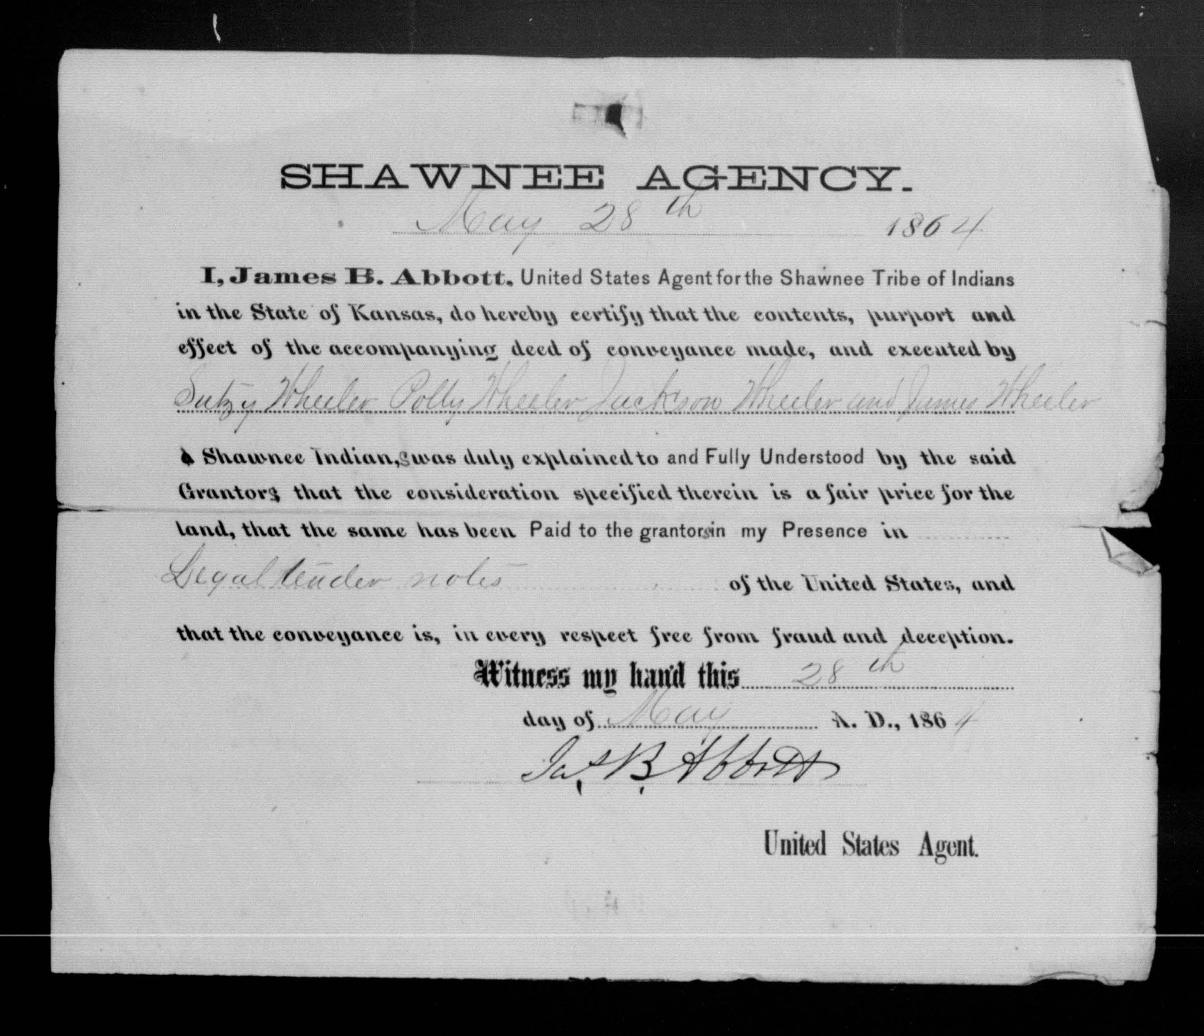 SHAWNEE AGENCY.
May 28th 1864
I, James B. Abbott, United States Agent for the Shawnee Tribe of Indians
in the State of Kansas, do hereby certify that the contents, purport and
effect of the accompanying deed of conveyance made, and executed by
Wheeler Polly Wheeler Jackson Wheeler and James Wheeler
Shawnee Indian,s was duly explained to and Fully Understood by the said
Grantors that the consideration specified therein is a fair price for the
land, that the same has been Paid to the grantors in my Presence in
Legal tender notes of the United States, and
that the conveyance is, in every respect free from fraud and deception.
Witness my hand this 28th
day of May A. D., 1864
Jas B Abbott
United States Agent.